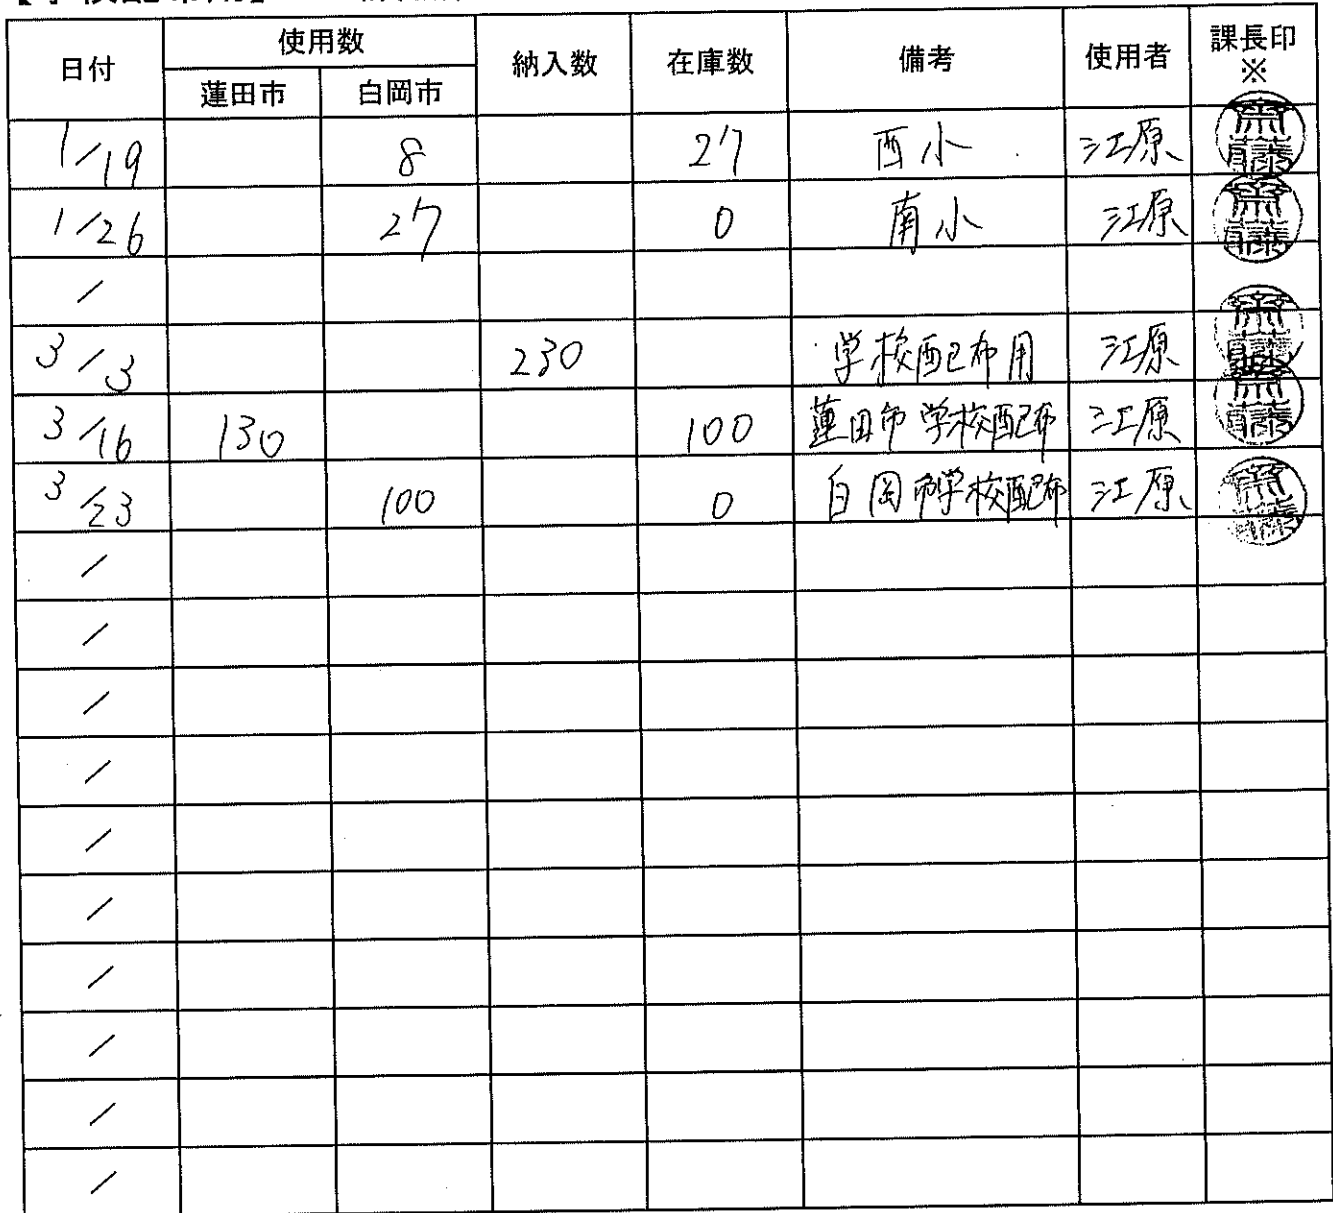 使用数
日付 納入数 在庫数 備考 使用者 課長印
※
蓮田市 白岡市
1/19 8 27 西小 江原 齋藤
1/26 27 0 南小 江原 齋藤
/
3/3 230 学校配布用 江原 齋藤
3/16 130 100 蓮田市学校配布 江原 齋藤
3/23 100 0 白岡市学校配布 江原 齋藤
/
/
/
/
/
/
/
/
/
/